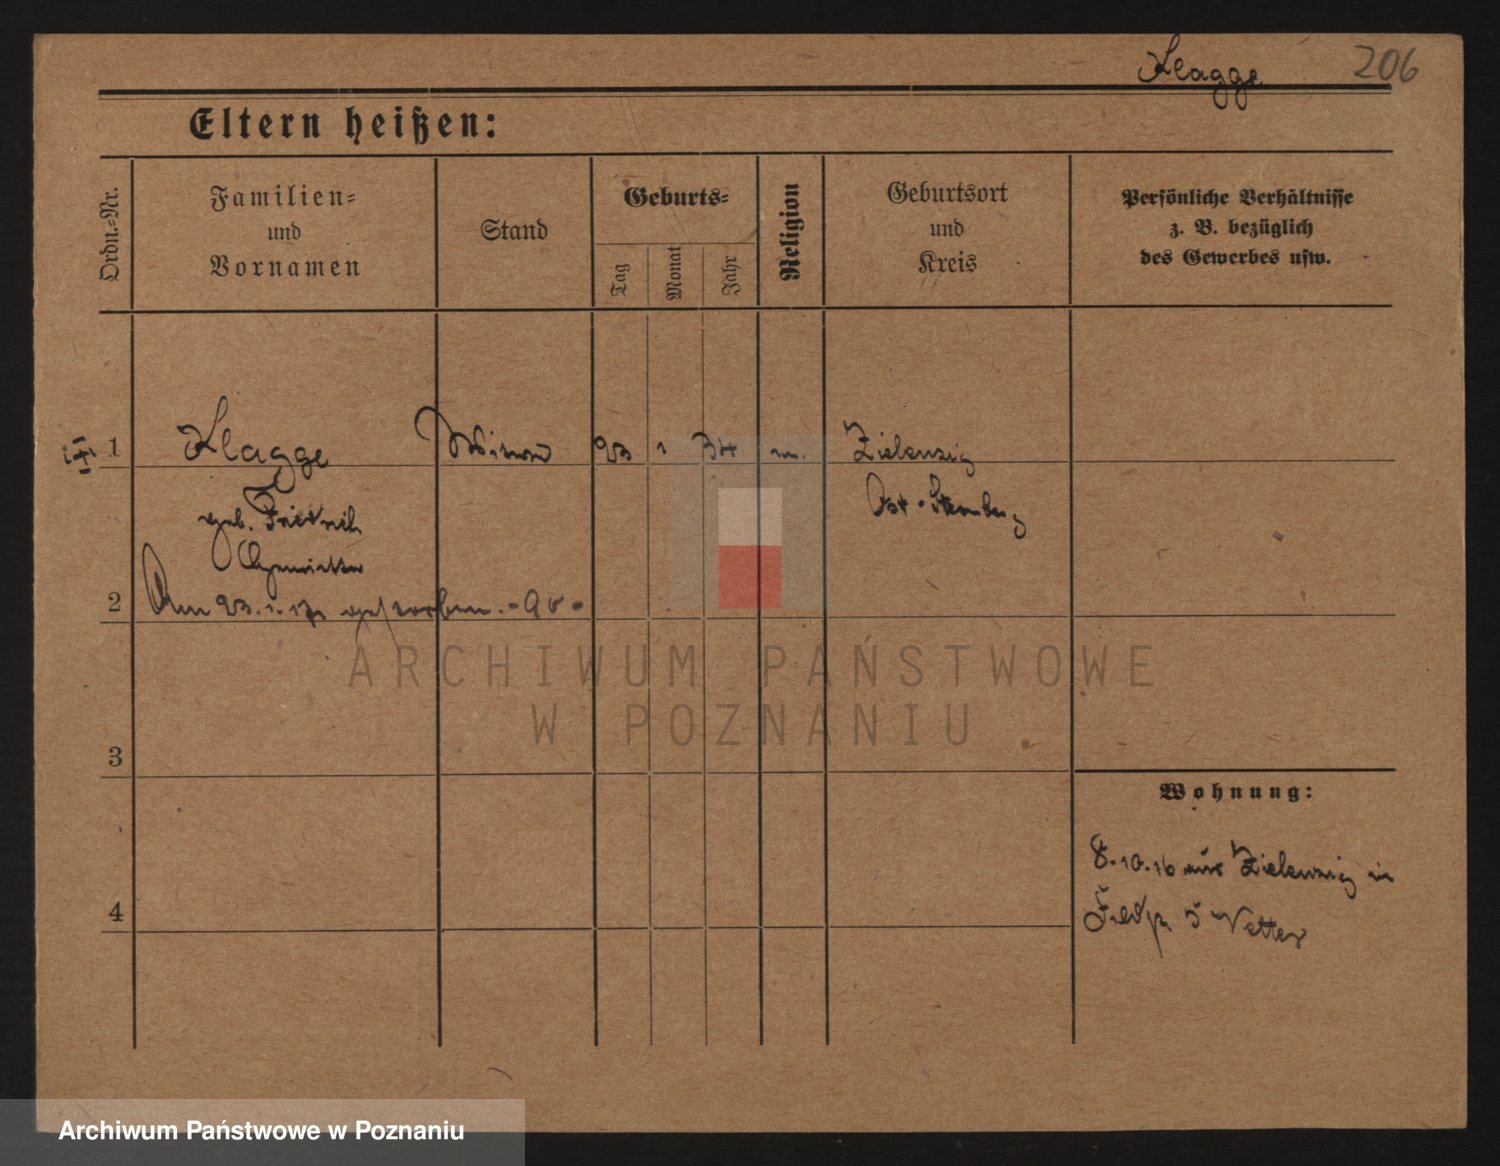 Klagge 206
Eltern heißen:
Ordn.-Nr.
Familien- und Vornamen
Stand
Geburts-
Tag
Monat
Jahr
Religion
Geburtsort und Kreis
Persönliche Verhältnisse
z. B. bezüglich
des Gewerbes usw.
1 Klagge Witwe 23 1 34 Zielenzig
geb. Friedrich Ost-Sternberg
2 Am 23.1.17 gestorben.
3
Wohnung:
8.10.16 aus Zielenzig in
5 Vetter
4
ARCHIWUM PAŃSTWOWE
W POZNANIU
Archiwum Państwowe w Poznaniu